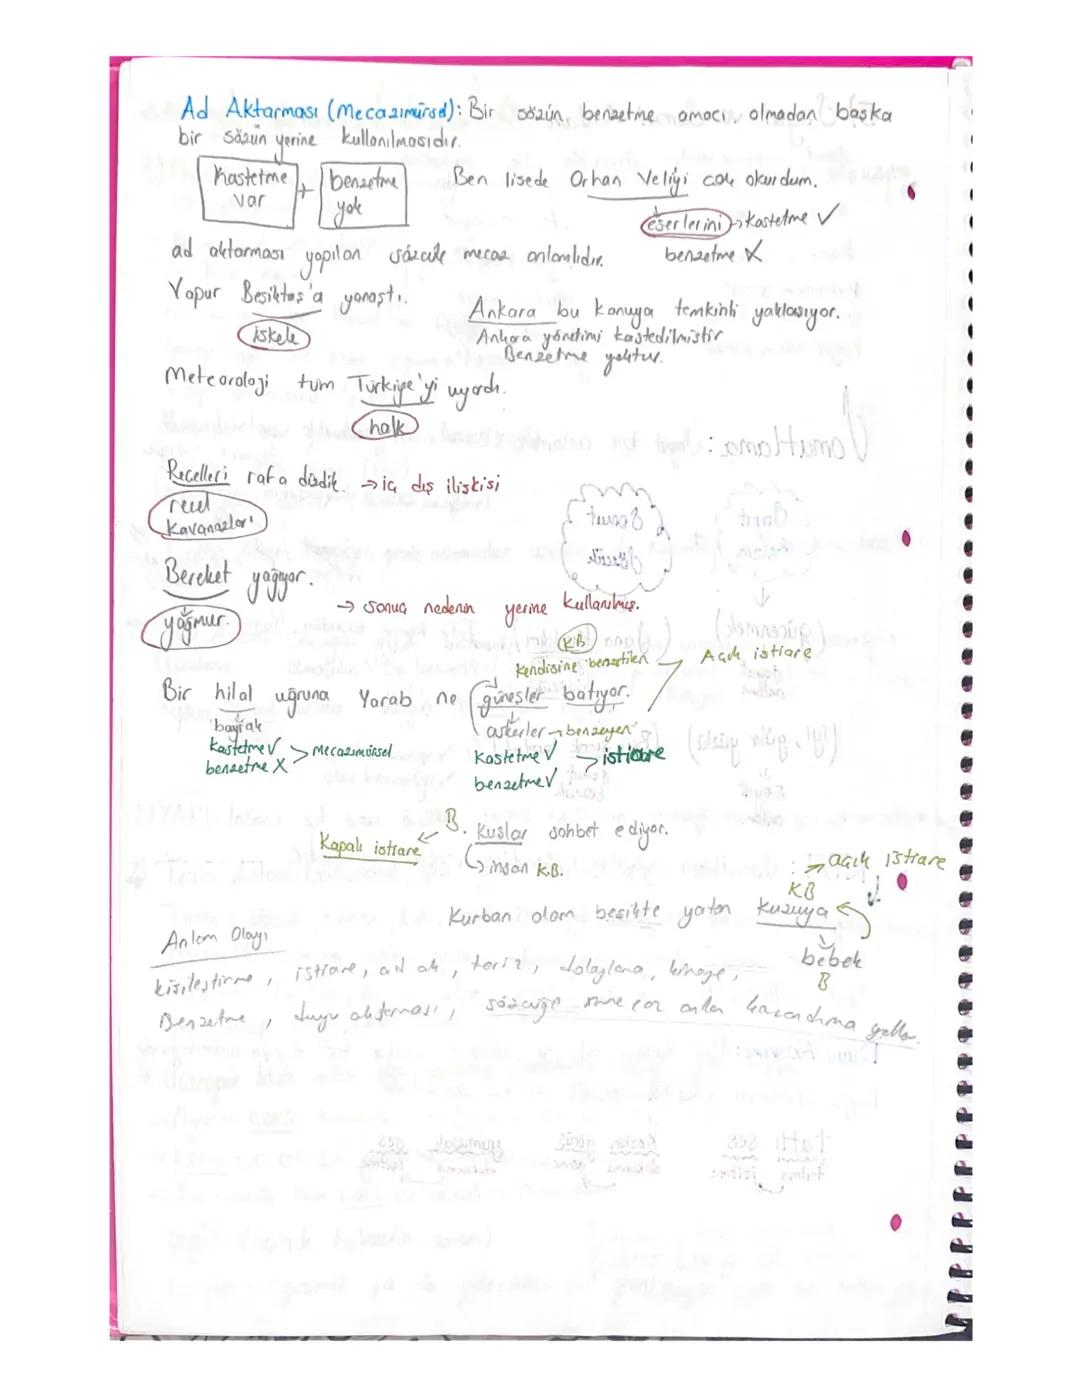 Ad Aktarması (Mecazımürsel): Bir sözün benzetme amacı olmadan başka
bir sözün yerine kullanılmasıdır.
kastetme var + benzetme yok
Ben lisede Orhan Veliyi çok okurdum.
eserlerini → kastetme ✓
benzetme X
ad aktarması yapılan sözcük mecaz anlamlıdır.
Vapur Beşiktaş'a yanaştı.
iskele
Ankara bu konuya temkinli yaklaşıyor.
Ankara yönetimi kastedilmiştir
Benzetme yoktur.
Meteoroloji tüm Türkiye'yi uyardı.
halk
Reçelleri rafa dizdik. → iç dış ilişkisi
reçel
kavanozları
Bereket yağıyor.
yağmur.
→ sonuç nedenin yerine kullanılmış.
KB
kendisine benzetilen → Açık istiare
Bir hilal uğruna Yarab ne güneşler batıyor.
bayrak
kastetme ✓
benzetme X > mecazımürsel
askerler → benzeyen
kastetme ✓
benzetme ✓ > istiare
B. Kuşlar sohbet ediyor.
Kapalı istiare
→ insan K.B.
: → açık istiare
KB
Kurban olam beşikte yatan kuzuya
bebek
B
Anlam Olayı
kişileştirme, istiare, ad ak., tariz, dolaylama, kinaye,
Benzetme, duyu aktarması, sözcüğe anlam kazandırma yolları.